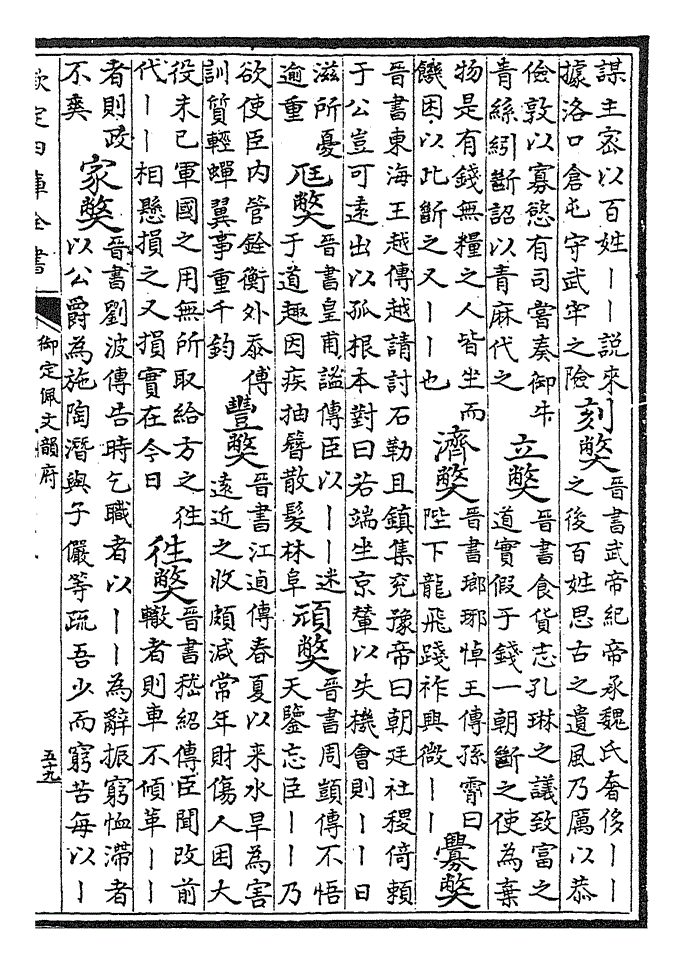 謀主密以百姓丨丨說來
據洛口倉屯守武牢之險
刻獘
晉書武帝紀帝承魏氏奢侈丨丨
之後百姓思古之遺風乃厲以恭
儉敦以寡慾有司嘗奏御牛
青絲紖斷詔以青麻代之
立獘
晉書食貨志孔琳之議致富之
道實假于錢一朝斷之使為棄
物是有錢無糧之人皆坐而
饑困以此斷之又丨丨也
濟獘
晉書瑯琊悼王傳孫霄曰
陛下龍飛踐祚興微丨丨
釁獘
晉書東海王越傳越請討石勒且鎮集兖豫帝曰朝廷社稷倚賴
于公豈可遠出以孤根本對曰若端坐京輦以失機會則丨丨日
滋所憂
逾重
尫獘
晉書皇甫謐傳臣以丨丨迷
于道趣因疾抽簪散髮林阜
頑獘
晉書周顗傳不悟
天鑒忘臣丨丨乃
欲使臣内管銓衡外忝傅
訓質輕蟬翼事重千鈞
豐獘
晉書江逌傳春夏以来水旱為害
遠近之收頗減常年財傷人困大
役未已軍國之用無所取給方之徃
代丨丨相懸損之又損實在今日
徃獘
晉書嵇紹傳臣聞改前
轍者則車不傾革丨丨
者則政
不爽
家獘
晉書劉波傳告時乞職者以丨丨為辭振窮恤滯者
以公爵為施陶潛與子儼等疏吾少而窮苦每以丨
欽定四庫全書
御定佩文韻府
五十九